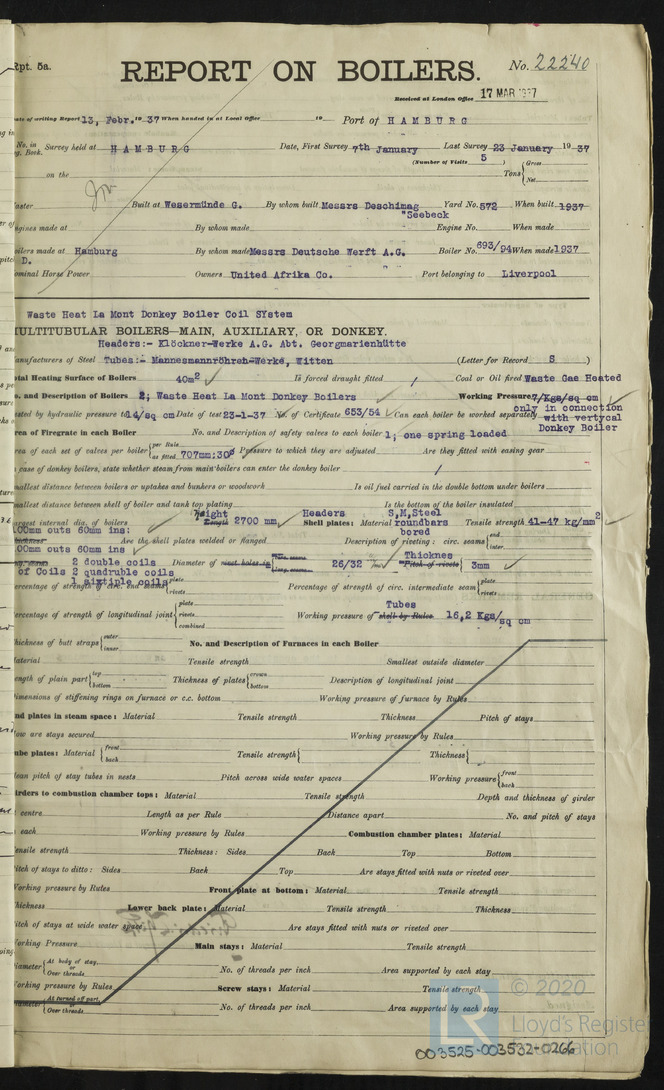 Rpt. 5a.
REPORT ON BOILERS.
No. 22240
Received at London Office 17 MAR 1937
ate of writing Report 13, Febr. 19 37 When handed in at Local Office 19 Port of HAMBURG
No. in Survey held at HAMBURG Date, First Survey 7th January Last Survey 23 January 19 37
g. Book.
(Number of Visits 5 )
on the Tons { Gross
Net
aster Built at Wesermünde G. By whom built Messrs Deschimag Yard No. 572 When built 1937
"Seebeck
ngines made at By whom made Engine No. When made
oilers made at Hamburg By whom made Messrs Deutsche Werft A.G. Boiler No. 693/94 When made 1937
D.
ominal Horse Power Owners United Afrika Co. Port belonging to Liverpool
Waste Heat La Mont Donkey Boiler Coil SYstem
MULTITUBULAR BOILERS—MAIN, AUXILIARY, OR DONKEY.
Headers:- Klöckner-Werke A.G. Abt. Georgmarienhütte
anufacturers of Steel Tubes:- Mannesmannröhreh-Werke, Witten (Letter for Record S )
otal Heating Surface of Boilers 40m2 Is forced draught fitted / Coal or Oil fired Waste Gas Heated
o. and Description of Boilers 2; Waste Heat La Mont Donkey Boilers Working Pressure 7/Kgs/sq cm
only in connection
ested by hydraulic pressure to 14/sq cm Date of test 23-1-37 No. of Certificate 653/54 Can each boiler be worked separately with vertycal
Donkey Boiler
rea of Firegrate in each Boiler No. and Description of safety valves to each boiler 1; one spring loaded
rea of each set of valves per boiler { per Rule
as fitted 707mm:30ø Pressure to which they are adjusted Are they fitted with easing gear
case of donkey boilers, state whether steam from main boilers can enter the donkey boiler /
mallest distance between boilers or uptakes and bunkers or woodwork Is oil fuel carried in the double bottom under boilers
mallest distance between shell of boiler and tank top plating Is the bottom of the boiler insulated
argest internal dia. of boilers Height Length 2700 mm Headers Shell plates: Material S,M,Steel roundbars bored Tensile strength 41-47 kg/mm2
00mm outs 60mm ins:
Are the shell plates welded or flanged Description of riveting: circ. seams { end
inter.
00mm outs 60mm ins
2 double coils Diameter of rivet holes in 26/32 Thicknes Pitch of rivets 3mm
of Coils 2 quadruble coils
1 sixtiple coils
ercentage of strength of circ. end seams { plate
rivets Percentage of strength of circ. intermediate seam { plate
rivets
ercentage of strength of longitudinal joint { plate
rivets
combined Working pressure of shell by Rules Tubes 16,2 Kgs/sq cm
hickness of butt straps { outer
inner No. and Description of Furnaces in each Boiler
aterial Tensile strength Smallest outside diameter
ength of plain part { top
bottom Thickness of plates { crown
bottom Description of longitudinal joint
imensions of stiffening rings on furnace or c.c. bottom Working pressure of furnace by Rules
nd plates in steam space: Material Tensile strength Thickness Pitch of stays
ow are stays secured Working pressure by Rules
ube plates: Material { front
back Tensile strength { Thickness {
ean pitch of stay tubes in nests Pitch across wide water spaces Working pressure { front
back
irders to combustion chamber tops: Material Tensile strength Depth and thickness of girder
centre Length as per Rule Distance apart No. and pitch of stays
each Working pressure by Rules Combustion chamber plates: Material
ensile strength Thickness: Sides Back Top Bottom
itch of stays to ditto: Sides Back Top Are stays fitted with nuts or riveted over
Working pressure by Rules Front plate at bottom: Material Tensile strength
hickness Lower back plate: Material Tensile strength Thickness
itch of stays at wide water space Are stays fitted with nuts or riveted over
orking Pressure Main stays: Material Tensile strength
iameter { At body of stay,
or
Over threads. No. of threads per inch Area supported by each stay
orking pressure by Rules Screw stays: Material Tensile strength
iameter { At turned off part,
or
Over threads. No. of threads per inch Area supported by each stay
© 2020
Lloyd's Register
Foundation
003525-003532-0266